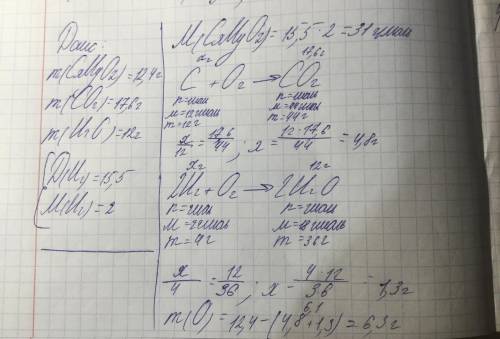 Дано:
m(CxHyOz)=12,4г
m(CO₂)=17,6г
m(H₂O)=12г
D(H₂)=15,5
M(H₂)=2
M(CxHyOz)=15,5·2=31г/моль
xг 17,6г
C + O₂ → CO₂
n=1моль n=1моль
M=12г/моль M=44г/моль
m=12г m=44г
x/12 = 17,6/44 ; x = 12·17,6/44 = 4,8г
xг 12г
2H₂ + O₂ → 2H₂O
n=2моль n=2моль
M=2г/моль M=18г/моль
m=4г m=36г
x/4 = 12/36 ; x - 4·12/36 = 1,3г
6,1
m(O)=12,4-(4,8+1,3)=6,3г